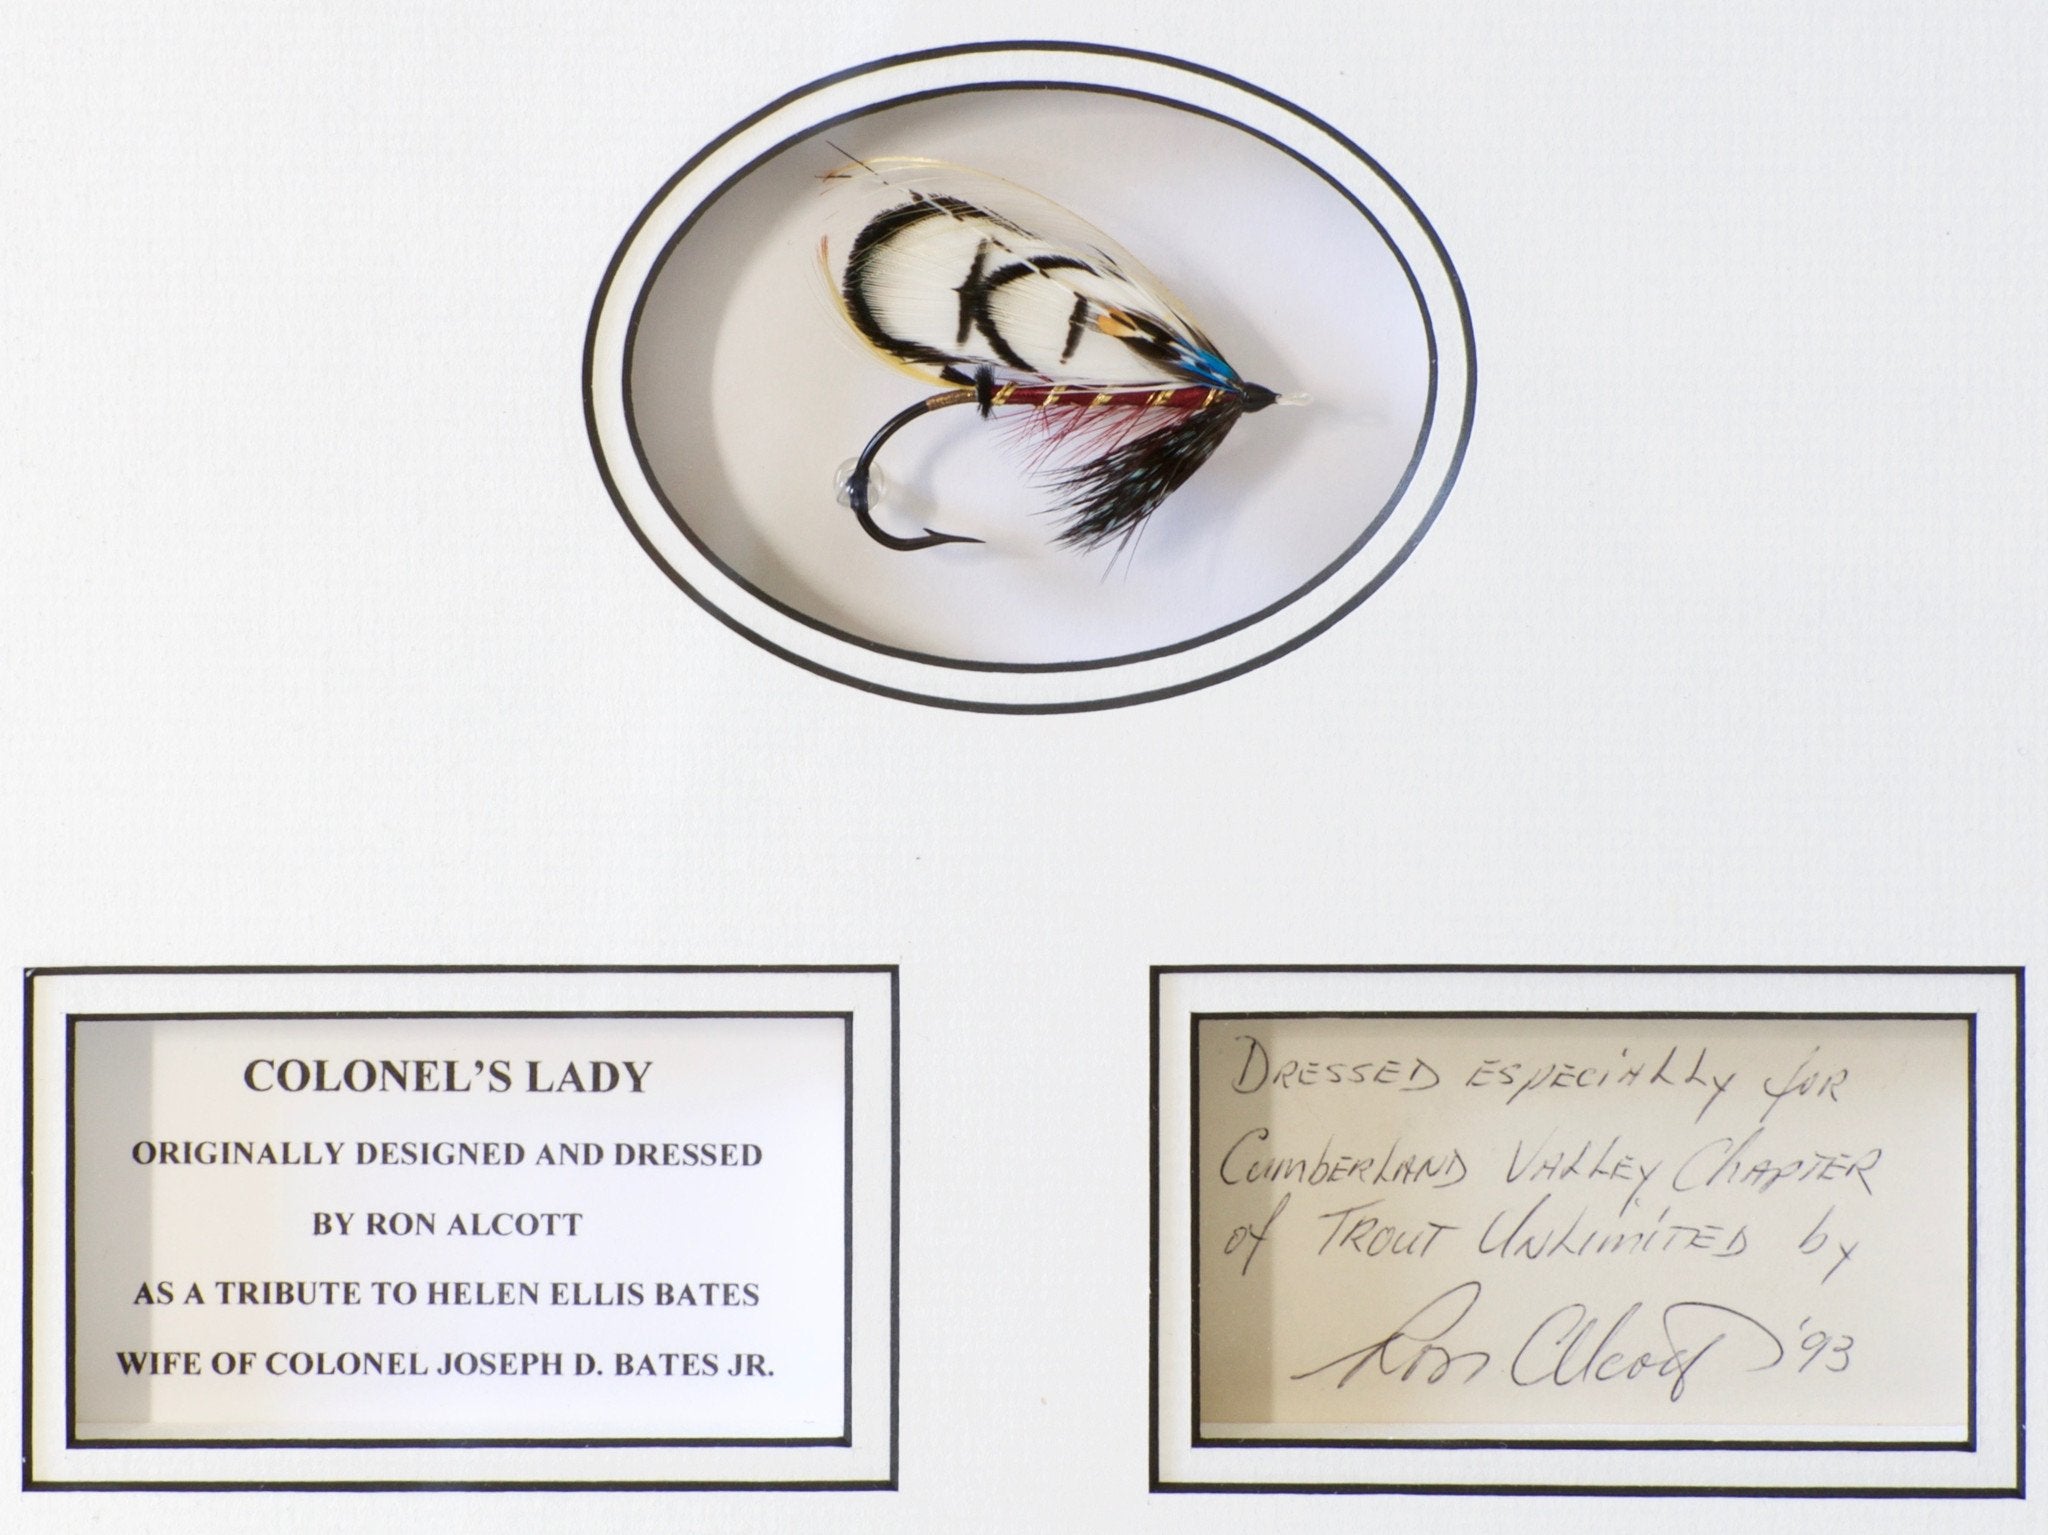 COLONEL'S LADY
ORIGINALLY DESIGNED AND DRESSED
BY RON ALCOTT
AS A TRIBUTE TO HELEN ELLIS BATES
WIFE OF COLONEL JOSEPH D. BATES JR.
DRESSED ESpECiALLy for
CumbERLAND VALLEy ChAPTER
of TROUT UNLimiTED by
Ron Alcott '93